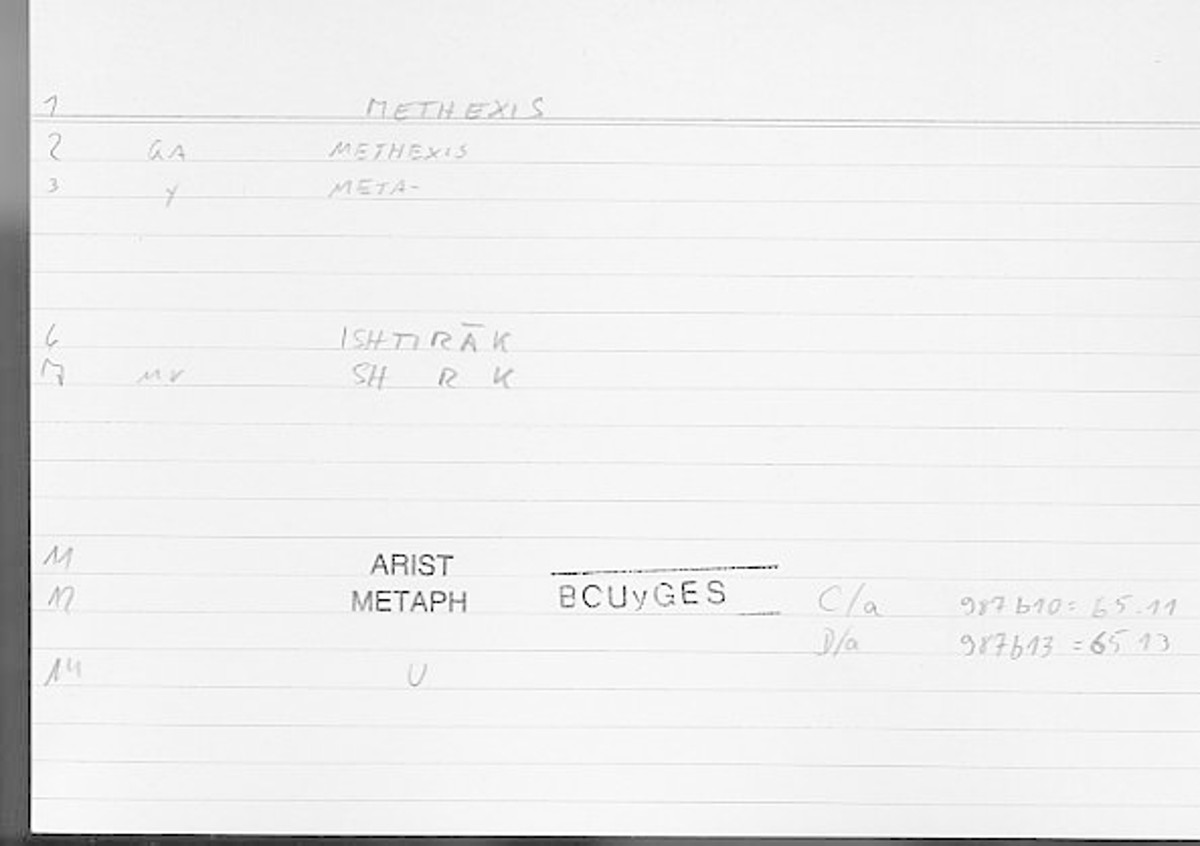 1 METHEXIS
2 GA METHEXIS
3 y META-
6 ISHTIRĀK
7 MV SH R K
11 ARIST
12 METAPH BCUyGES C/a 987b10= 65.11
D/a 987b13 =65 13
14 U